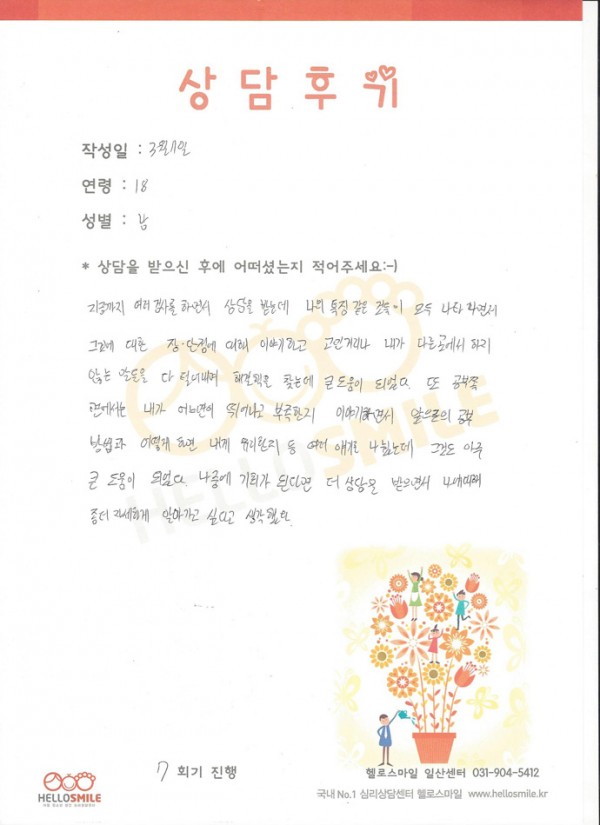 상담후기
작성일 : 3월 11일
연령 : 18
성별 : 남
* 상담을 받으신 후에 어떠셨는지 적어주세요:-)
지금까지 여러 검사를 하면서 상담을 받는데 나의 특징 같은 것들이 모두 나타나면서
그것에 대한 장·단점에 대해 이야기하고 고민거리나 내가 다른곳에서 하지
않는 말들을 다 털어내며 해결책을 찾는데 큰 도움이 되었다. 또 공부쪽
면에서는 내가 어느면이 뛰어나고 부족한지 이야기하면서 앞으로의 공부
방법과 어떻게 하면 내게 유리한지 등 여러 얘기를 나눴는데 그것도 아주
큰 도움이 되었다. 나중에 기회가 된다면 더 상담을 받으면서 나에대해
좀더 자세하게 알아가고 싶다고 생각했다.
HELLOSMILE
7 회기 진행
헬로스마일 일산센터 031-904-5412
HELLOSMILE
국내 No.1 심리상담센터 헬로스마일 www.hellosmile.kr